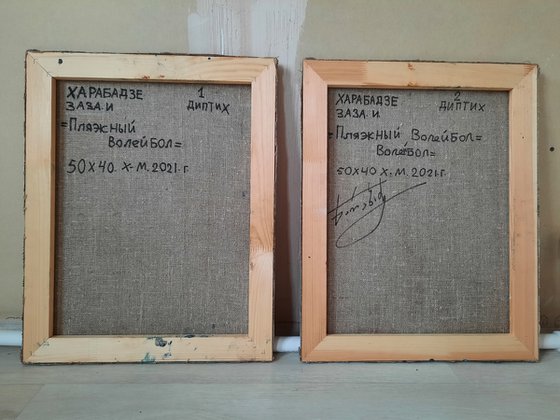 ХАРАБАДЗЕ 1
ЗАЗА. И ДИПТИХ
=Пляжный
Волейбол=
50х40. Х-М. 2021. г
ХАРАБАДЗЕ 2
ЗАЗА. И ДИПТИХ
=Пляжный Волейбол=
Волейбол=
50х40 Х-М. 2021. г